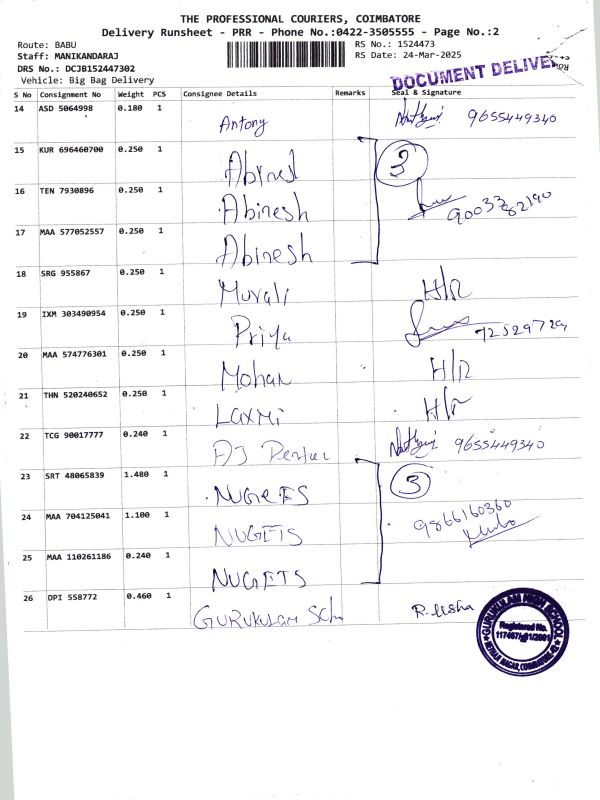 THE PROFESSIONAL COURIERS, COIMBATORE
Delivery Runsheet - PRR - Phone No.:0422-3505555 - Page No.:2
Route: BABU
Staff: MANIKANDARAJ
DRS No.: DCJB152447302
Vehicle: Big Bag Delivery
RS No.: 1524473
RS Date: 24-Mar-2025
DOCUMENT DELIVE
S No Consignment No Weight PCS Consignee Details Remarks Seal & Signature
14 ASD 5064998 0.180 1 Antony 9655449340
15 KUR 696460700 0.250 1 Abinesh 3
16 TEN 7930896 0.250 1 Abinesh
17 MAA 577052557 0.250 1 Abinesh
18 SRG 955867 0.250 1 Murali H/R
19 IXM 303490954 0.250 1 Priya
20 MAA 574776301 0.250 1 Mohan H/R
21 THN 520240652 0.250 1 Laxmi H/R
22 TCG 90017777 0.240 1 9655449340
23 SRT 48065839 1.480 1 NUGETS 3
24 MAA 704125041 1.100 1 NUGETS 9866160360
25 MAA 110261186 0.240 1 NUGETS
26 DPI 558772 0.460 1 GURUKULAM Sch R. Usha
GURUKULAM HIGH SCHOOL
Registered No.